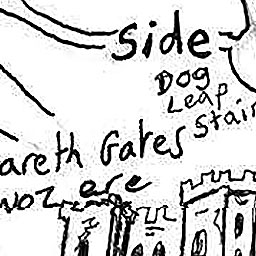 side
Dog
Leap
Stair
areth Gates
woz ere